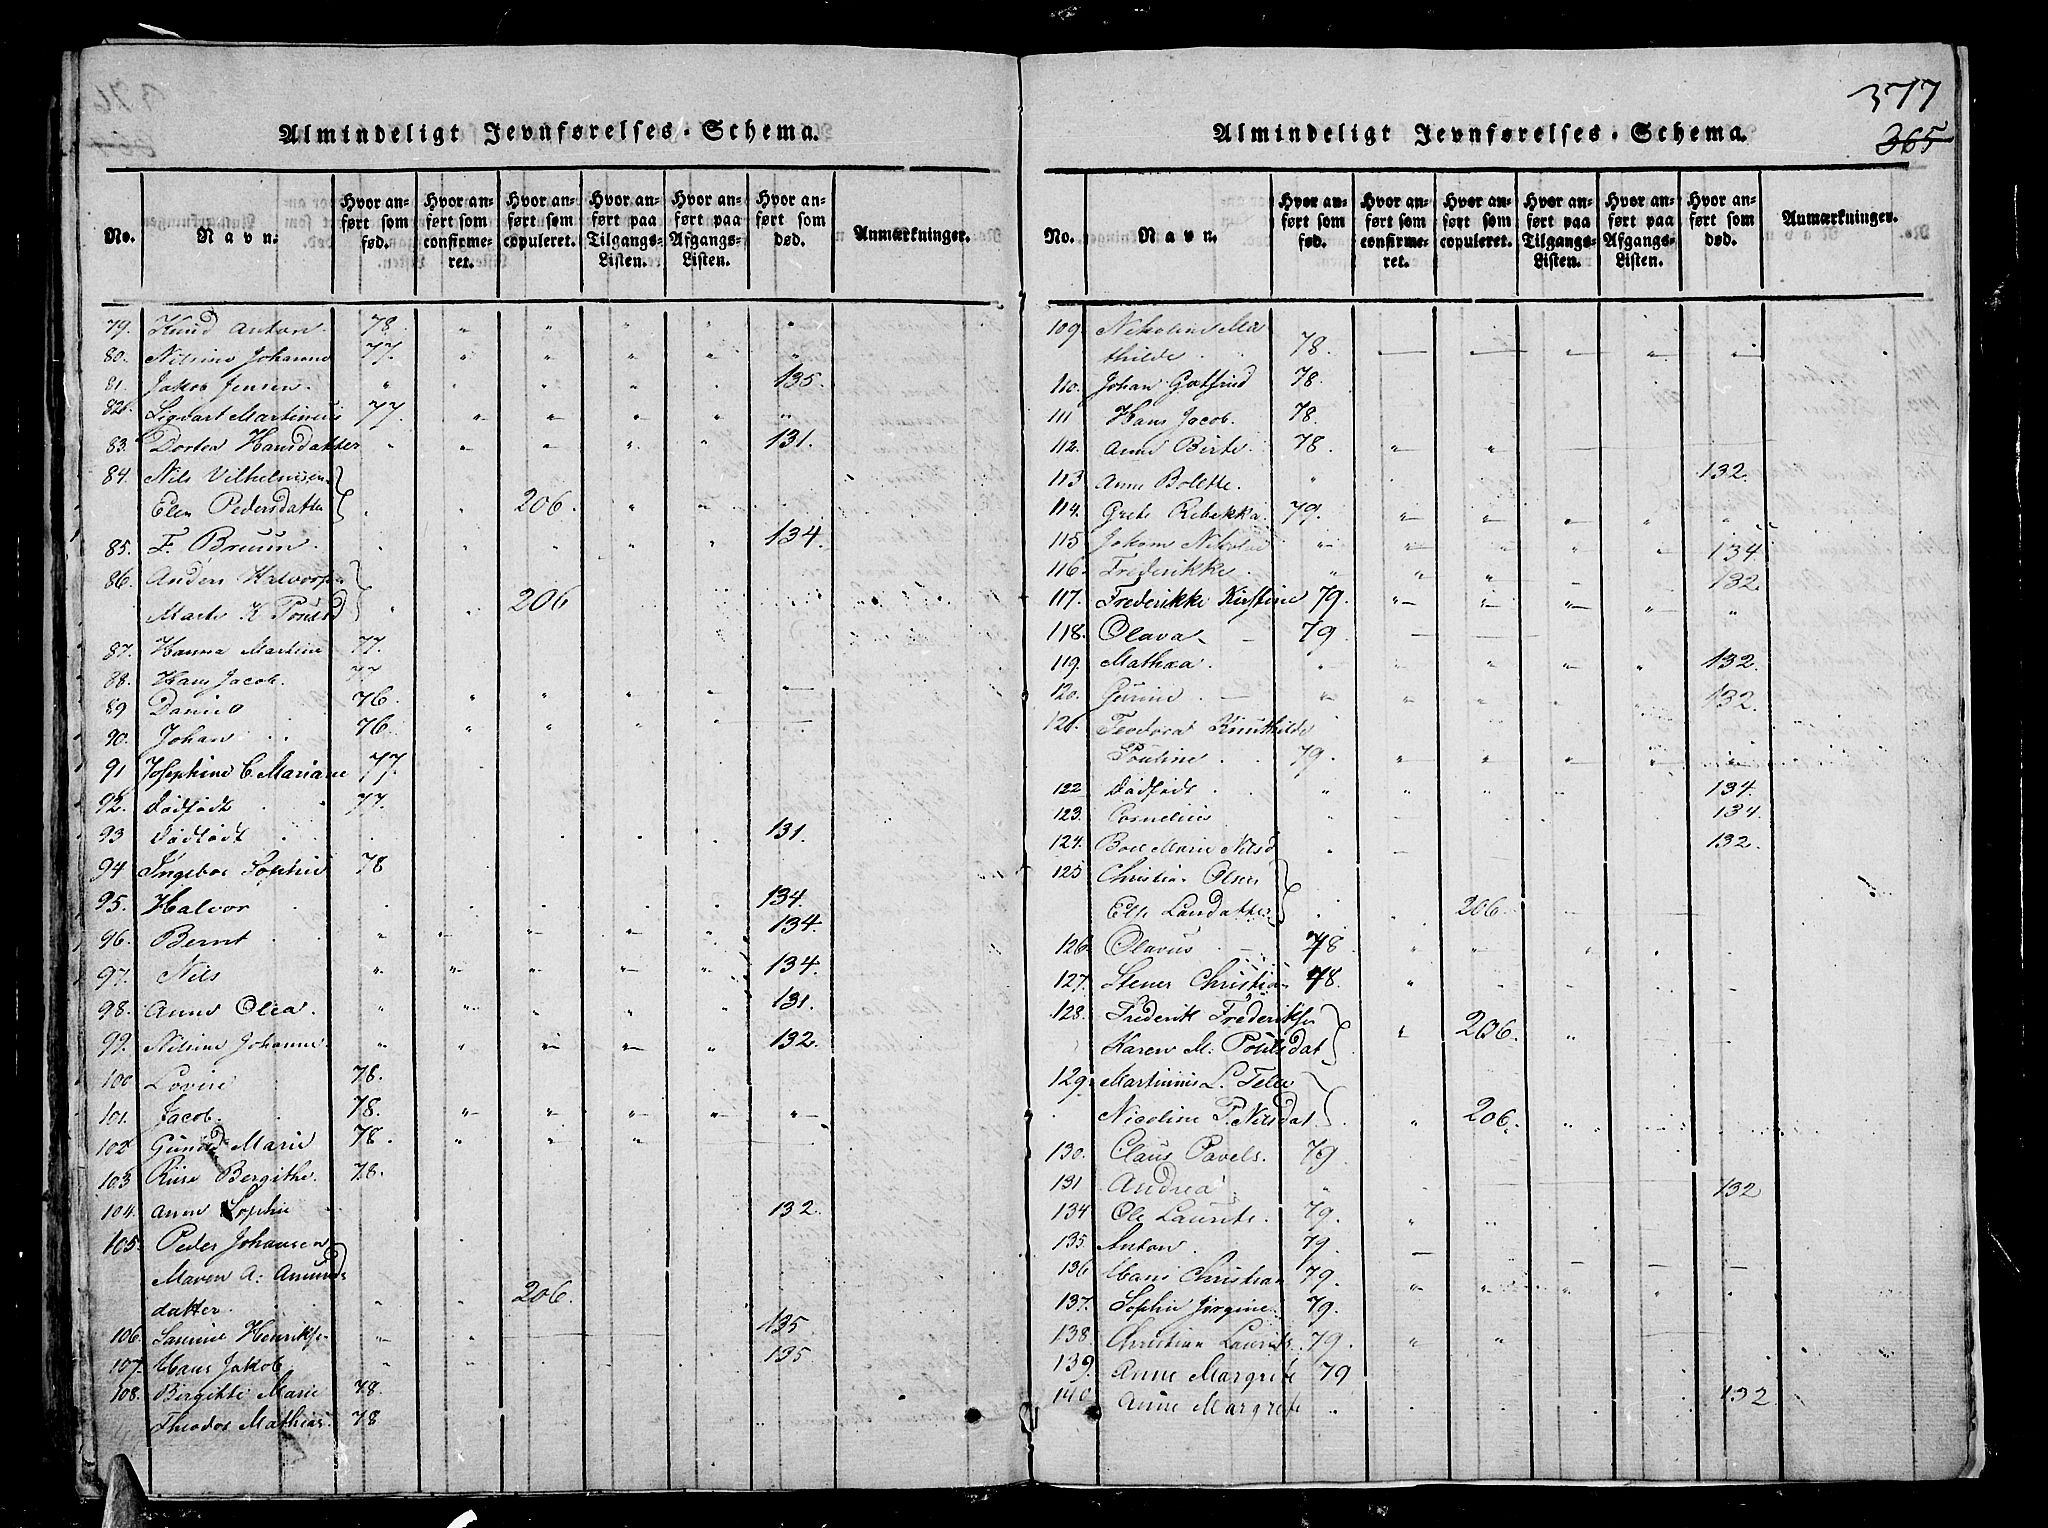 Almindeligt Jevnførelses-Schema.
No. Navn. Hvor anført som fød. Hvor anført som confirmeret. Hvor anført som copuleret. Hvor anført paa Tilgangs-Listen. Hvor anført paa Afgangs-Listen. Hvor anført som død. Anmærkninger.
79. Knud Anton. 78. " " " " "
80. Nilsine Johanne 77. " " " " "
81. Jakob Jensen. " " " " " 135.
82. Sigvart Martinius 77. " " " " "
83. Dortea Hansdatter " " " " " 131.
84. Nils Vilhelmsen
Elen Pedersdatter " " 206. " "
85. F. Bruun. " " " " " 134.
86. Anders Halvorsen
Marte K Poulsd " " 206
87. Hanna Martine 77.
88. Hans Jacob. 77
89 Daniel 76. " " " "
90. Johan 76. " " " "
91 Josephine C. Mariane 77.
92. Dødfødt 77.
93 Dødfødt 131.
94 Ingebor Sophie 78
95. Halvor 134.
96. Bernt " " " " " 134.
97. Nils " " " " " 134.
98. Anne Olea. " " " " " 131.
99. Nilsine Johanne. " " " " " 132.
100 Lovise 78.
101. Jacob. 78. " " " " "
102 Marie 78. " " "
103 Bergithe. 78.
104. Anne Sophie 132.
105. Peder Johansen
Maren A: Amunds
datter. " " 206.
106. Henriks " " 135.
107. Hans Jakob. " " 135
108. Birgitte Marie 78.
Theodor Mathias. 78
377
365
Almindeligt Jevnførelses-Schema.
No. Navn. Hvor anført som fød. Hvor anført som confirmeret. Hvor anført som copuleret. Hvor anført paa Tilgangs-Listen. Hvor anført paa Afgangs-Listen. Hvor anført som død. Anmærkninger.
109. Nikoline Ma
thilde 78.
110. Johan Gotfried 78.
111 Hans Jacob. 78.
112. Anne Birte. 78. " "
113 Anne Bolette. " 132.
114. Grete Rebekka. 79. " " " " "
115 Nikolai " " " " " 134
116. Frederikke. " " " 132.
117. Frederikke Kirstine 79. " " " " "
118. Olava 79
119. Mathea. " " " " " 132.
120. " " " 132.
121. Teodora Knuthilde
Pouline 79. " " " " "
122 Dødfødt " " " 134.
123. Cornelius 134.
124. Marie Nilsd " 132.
125 Christia. Olsen
Else Larsdatter 206.
126. Olavus 78 " "
127. Stener Christian 78.
128. Frederik Frederiksen
Karen M: Poulsdat " 206. "
129. Martinius L.
Nicoline P. Nilsdat " 206.
130. Claus Pavels. 79
131 Andrea. " 132
134 Ole Laurits. 79. " "
135 Anton. 79.
136 Hans Christian 79.
137. Sophie Jørgine. 79.
138 Christian Laurits. 79. " "
139. Anne Margrete 79
140. Anne Margrete " 132